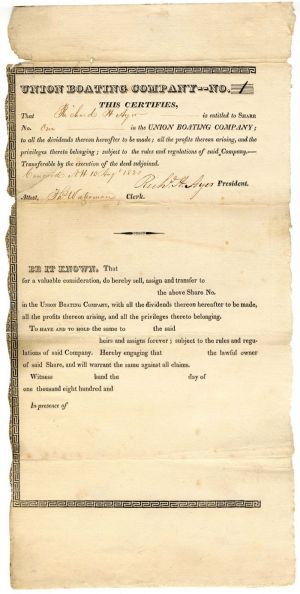 UNION BOATING COMPANY--NO. 1
THIS CERTIFIES,
That Richard H Ayer is entitled to SHARE
No. One in the UNION BOATING COMPANY;
to all the dividends thereon hereafter to be made; all the profits thereon arising, and the
privileges thereto belonging; subject to the rules and regulations of said Company.—
Transferable by the execution of the deed subjoined.
Concord NH 10 Augt
Richd H. Ayer President.
Attest, Waterman Clerk.
BE IT KNOWN, That
for a valuable consideration, do hereby sell, assign and transfer to
the above Share No.
in the UNION BOATING COMPANY, with all the dividends thereon hereafter to be made,
all the profits thereon arising, and all the privileges thereto belonging.
TO HAVE AND TO HOLD the same to the said
heirs and assigns forever; subject to the rules and regu-
lations of said Company. Hereby engaging that the lawful owner
of said Share, and will warrant the same against all claims.
Witness hand the day of
one thousand eight hundred and
In presence of